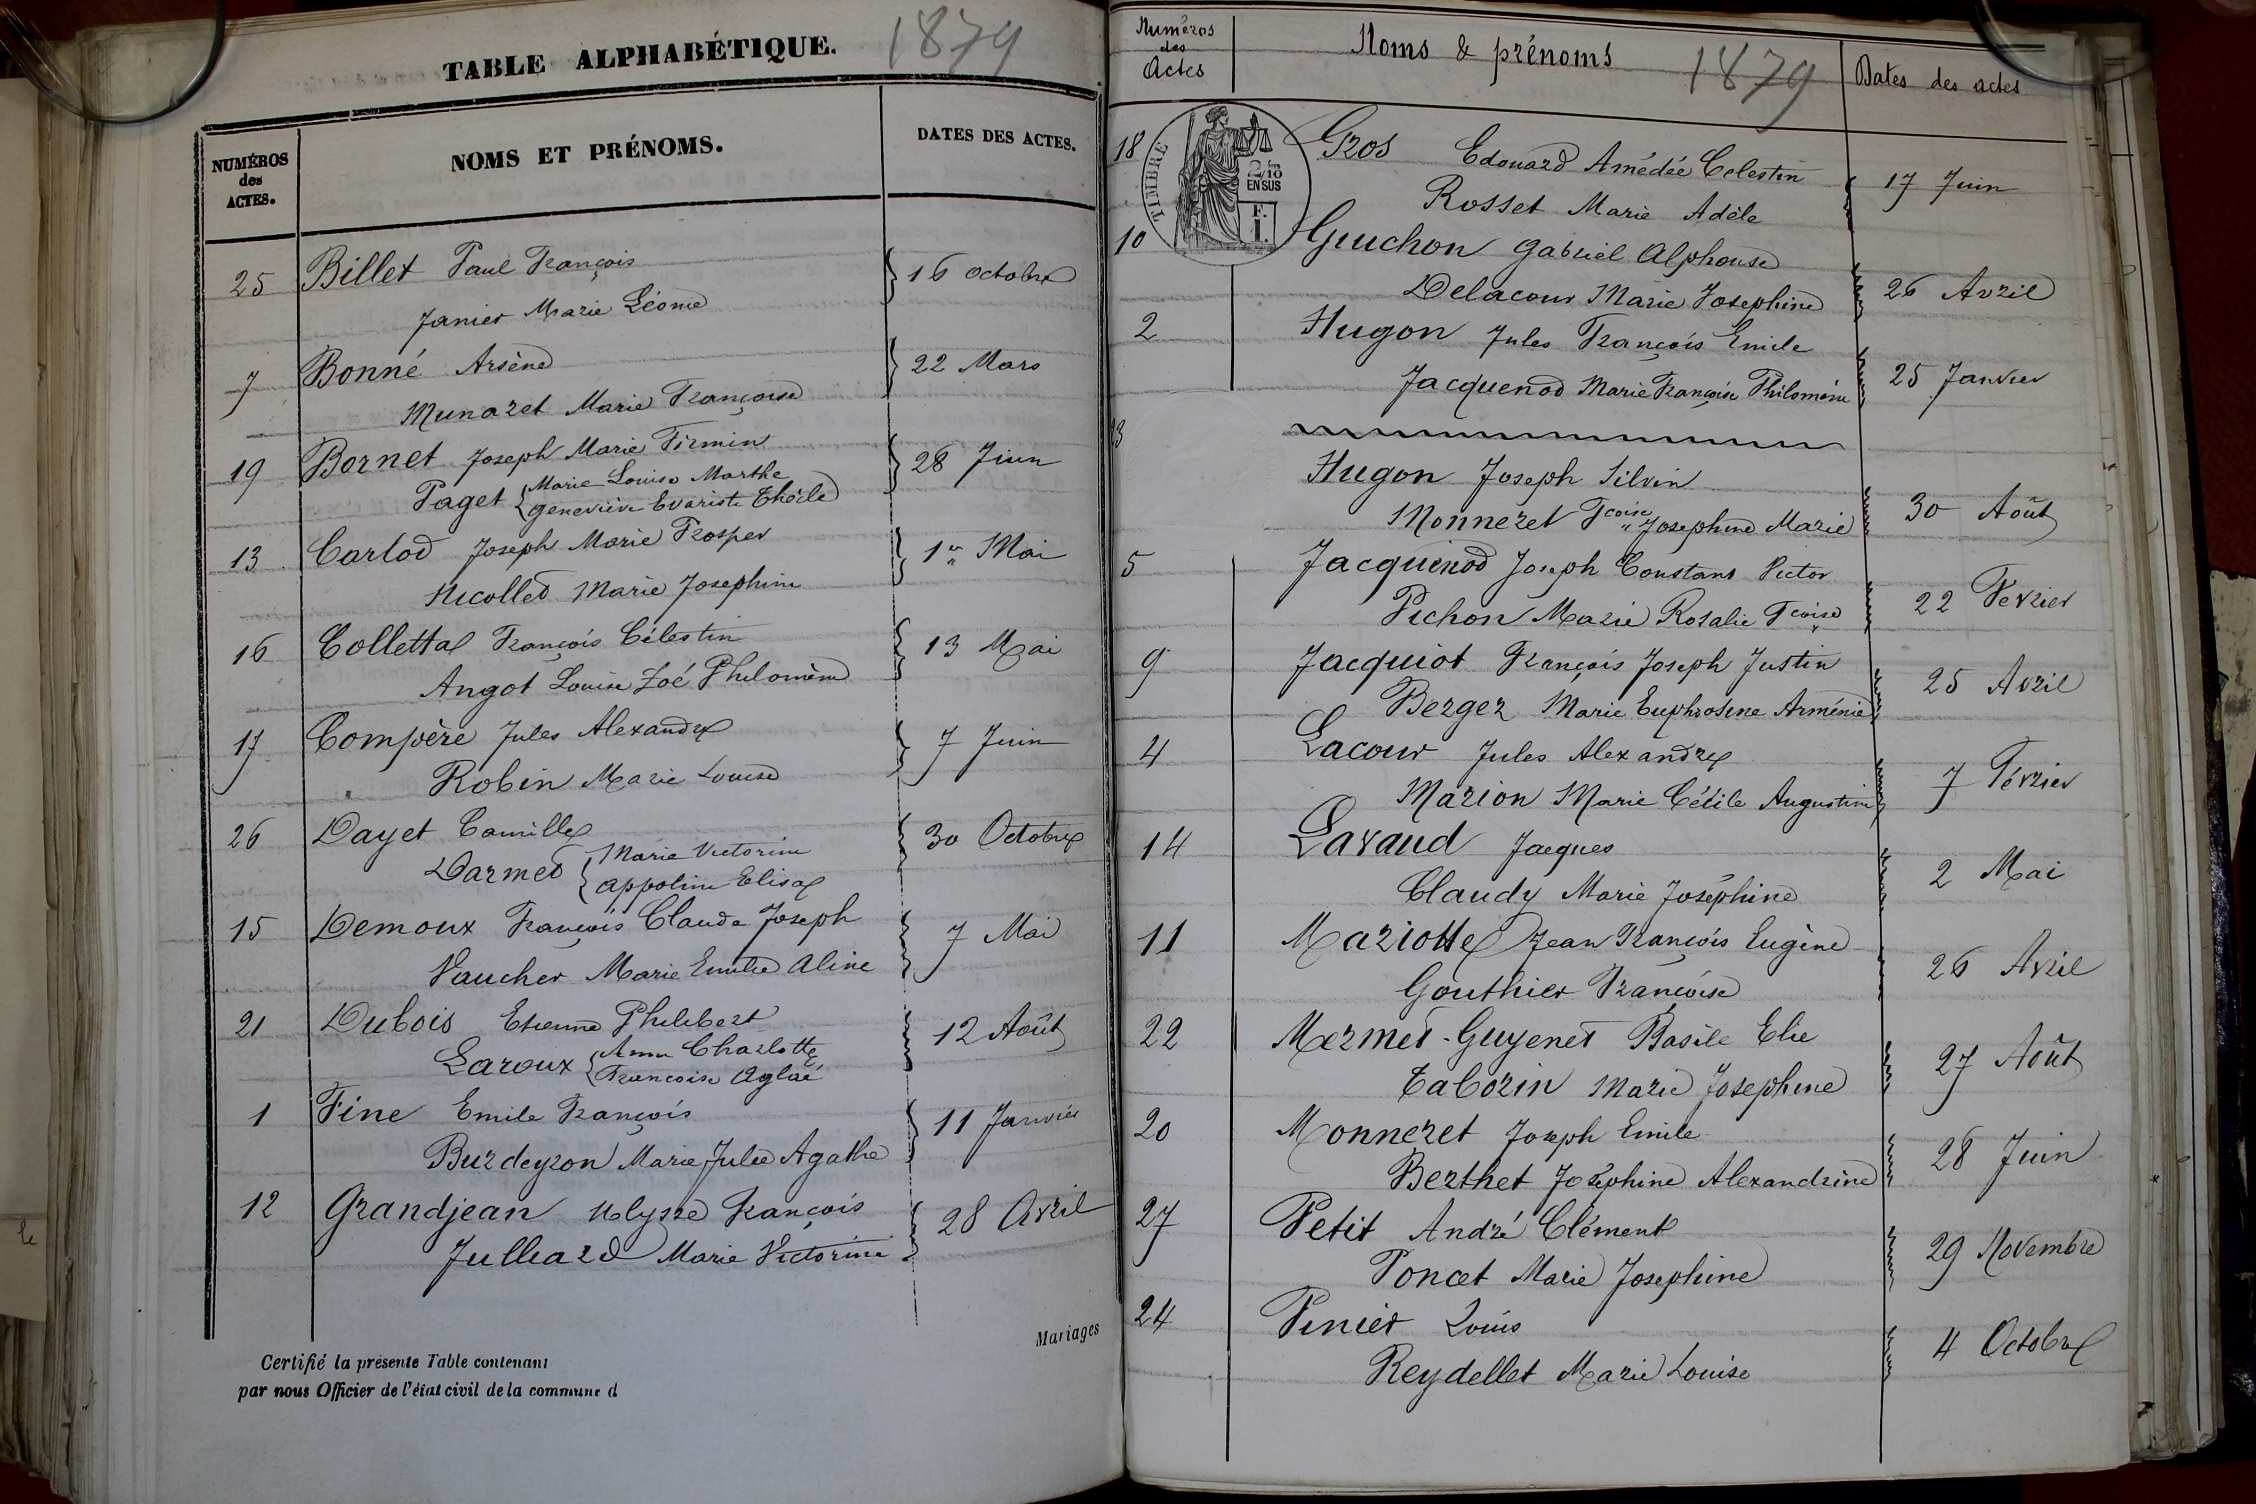 TABLE ALPHABÉTIQUE. 1879
NUMÉROS des ACTES.
NOMS ET PRÉNOMS.
DATES DES ACTES.
25 Billet Paul François 16 octobre
Janier Marie Léonie
7 Bonné Arsène 22 Mars
Munaret Marie Françoise
19 Bornet Joseph Marie Firmin 28 Juin
Paget { Marie Louise Marthe
Geneviève Evariste Thècle
13 Carlod Joseph Marie Prosper 1er Mai
Nicollet Marie Josephine
16 Colletta François Célestin 13 Mai
Angot Louise Zoé Philomène
17 Compère Jules Alexandre 7 Juin
Robin Marie Louise
26 Dayet Camille 30 Octobre
Darmet { Marie Victorine
Appoline Elisa
15 Demoux François Claude Joseph 7 Mai
Vaucher Marie Emilie Aline
21 Dubois Etienne Philibert 12 Août
Laroux { Anne Charlotte
Francoise Aglaé
1 Fine Emile François 11 Janvier
Burdeyron Marie Julie Agathe
12 Grandjean Ulysse François 28 Avril
Julliard Marie Victorine
Mariages
Certifié la présente Table contenant
par nous Officier de l'état civil de la commune d
Numéros des Actes
Noms & prénoms 1879
Dates des actes
TIMBRE
2/10 EN SUS
F. I.
18 Gros Edouard Amédée Celestin 17 Juin
Rosset Marie Adèle
10 Guichon Gabriel Alphonse
Delacour Marie Josephine 26 Avril
2 Hugon Jules François Emile
Jacquenod Marie Françoise Philomène 25 Janvier
23
Hugon Joseph Silvin
Monneret Fcoise Josephine Marie 30 Août
5 Jacquenod Joseph Constant Victor
Pichon Marie Rosalie Fcoise 22 Fevrier
9 Jacquiot François Joseph Justin
Berger Marie Euphrosine Arménie 25 Avril
4 Lacour Jules Alexandre
Marion Marie Cécile Augustine 7 Février
14 Lavaud Jacques
Claudy Marie Joséphine 2 Mai
11 Mariotte Jean François Eugène
Gouthier Françoise 26 Avril
22 Mermet-Guyenet Basile Elie
Taborin Marie Josephine 27 Août
20 Monneret Joseph Emile
Berthet Joséphine Alexandrine 28 Juin
27 Petit André Clément
Poncet Marie Josephine 29 Novembre
24 Pinier Louis
Reydellet Marie Louise 4 Octobre